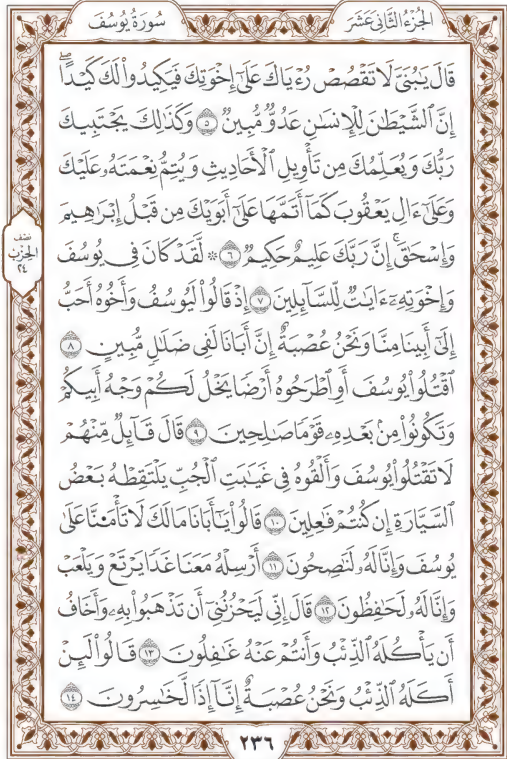 الجزء الثاني عشر
سورة يوسف
قَالَ يَٰبُنَىَّ لَا تَقْصُصْ رُءْيَاكَ عَلَىٰٓ إِخْوَتِكَ فَيَكِيدُوا۟ لَكَ كَيْدًا ۖ
إِنَّ ٱلشَّيْطَٰنَ لِلْإِنسَٰنِ عَدُوٌّ مُّبِينٌ ٥ وَكَذَٰلِكَ يَجْتَبِيكَ
رَبُّكَ وَيُعَلِّمُكَ مِن تَأْوِيلِ ٱلْأَحَادِيثِ وَيُتِمُّ نِعْمَتَهُۥ عَلَيْكَ
وَعَلَىٰٓ ءَالِ يَعْقُوبَ كَمَآ أَتَمَّهَا عَلَىٰٓ أَبَوَيْكَ مِن قَبْلُ إِبْرَٰهِيمَ
وَإِسْحَٰقَ ۚ إِنَّ رَبَّكَ عَلِيمٌ حَكِيمٌ ٦ ۞ لَّقَدْ كَانَ فِى يُوسُفَ
وَإِخْوَتِهِۦٓ ءَايَٰتٌ لِّلسَّآئِلِينَ ٧ إِذْ قَالُوا۟ لَيُوسُفُ وَأَخُوهُ أَحَبُّ
إِلَىٰٓ أَبِينَا مِنَّا وَنَحْنُ عُصْبَةٌ إِنَّ أَبَانَا لَفِى ضَلَٰلٍ مُّبِينٍ ٨
ٱقْتُلُوا۟ يُوسُفَ أَوِ ٱطْرَحُوهُ أَرْضًا يَخْلُ لَكُمْ وَجْهُ أَبِيكُمْ
وَتَكُونُوا۟ مِنۢ بَعْدِهِۦ قَوْمًا صَٰلِحِينَ ٩ قَالَ قَآئِلٌ مِّنْهُمْ
لَا تَقْتُلُوا۟ يُوسُفَ وَأَلْقُوهُ فِى غَيَٰبَتِ ٱلْجُبِّ يَلْتَقِطْهُ بَعْضُ
ٱلسَّيَّارَةِ إِن كُنتُمْ فَٰعِلِينَ ١٠ قَالُوا۟ يَٰٓأَبَانَا مَالَكَ لَا تَأْمَ۫نَّا عَلَىٰ
يُوسُفَ وَإِنَّا لَهُۥ لَنَٰصِحُونَ ١١ أَرْسِلْهُ مَعَنَا غَدًا يَرْتَعْ وَيَلْعَبْ
وَإِنَّا لَهُۥ لَحَٰفِظُونَ ١٢ قَالَ إِنِّى لَيَحْزُنُنِىٓ أَن تَذْهَبُوا۟ بِهِۦ وَأَخَافُ
أَن يَأْكُلَهُ ٱلذِّئْبُ وَأَنتُمْ عَنْهُ غَٰفِلُونَ ١٣ قَالُوا۟ لَئِنْ
أَكَلَهُ ٱلذِّئْبُ وَنَحْنُ عُصْبَةٌ إِنَّآ إِذًا لَّخَٰسِرُونَ ١٤
نصف
الحزب
٢٤
٢٣٦